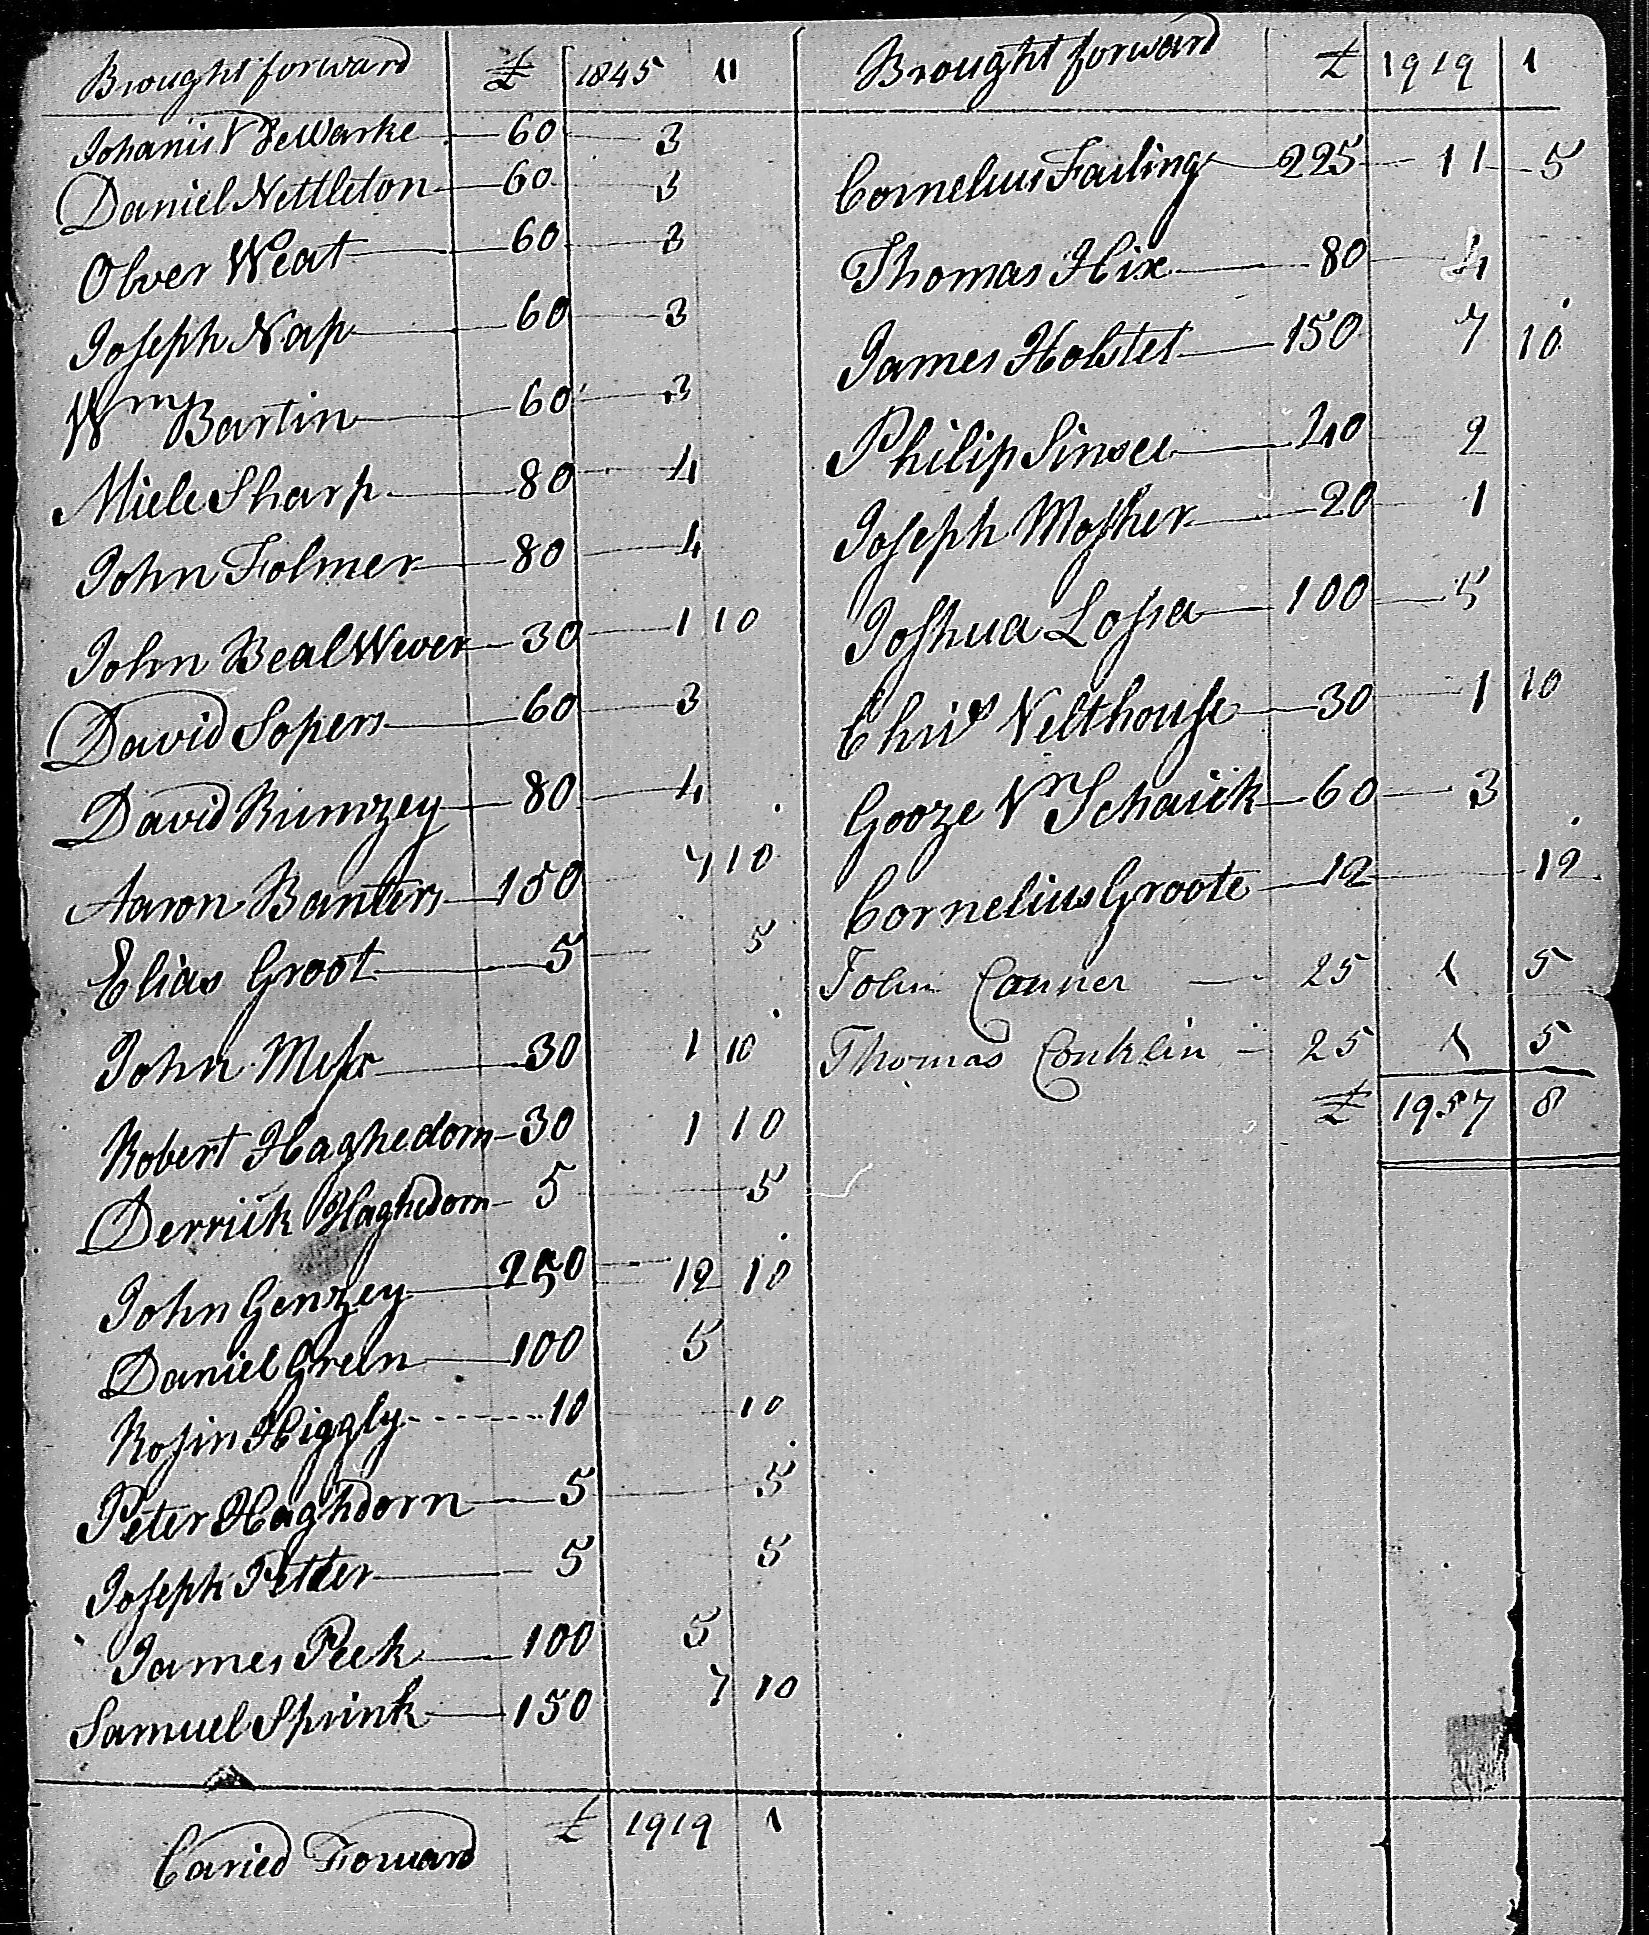 Brought forward £ 1845 11
Johanis V DeWarke 60 3
Daniel Nettleton 60 3
Olver Weat 60 3
Joseph Nap 60 3
Wm Bartin 60 3
Miele Sharp 80 4
John Folmer 80 4
John Beal Wever 30 1 10
David Sopers 60 3
David Rumzey 80 4
Aaron Banters 150 7 10
Elias Groot 5 5
John Mess 30 1 10
Robert Haghedorn 30 1 10
Derrick Haghdorn 5 5
John Genzey 250 12 10
Daniel Green 100 5
Rosin Higgly 10 10
Peter Haghdorn 5 5
Joseph Petter 5 5
James Peek 100 5
Samuel Sprink 150 7 10
Caried Forward £ 1919 1
Brought forward £ 1919 1
Cornelius Failing 225 11 5
Thomas Hix 80 4
James Holstet 150 7 10
Philip Sinsee 40 2
Joseph Mosher 20 1
Joshua Lossa 100 5
Chris Velthouse 30 1 10
Gooze Vn Schaick 60 3
Cornelius Groote 12 12
John Conner 25 1 5
Thomas Conklin 25 1 5
£ 1957 8